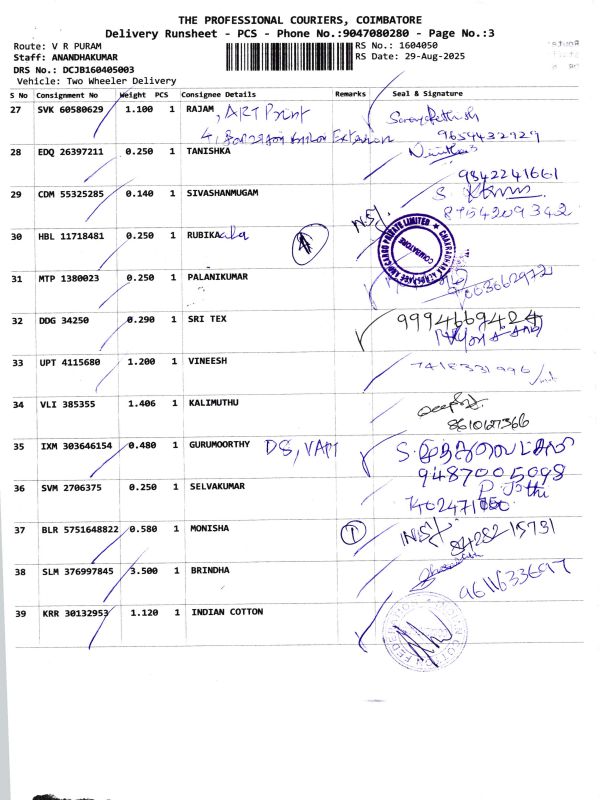 THE PROFESSIONAL COURIERS, COIMBATORE
Delivery Runsheet - PCS - Phone No.:9047080280 - Page No.:3
Route: V R PURAM RS No.: 1604050
Staff: ANANDHAKUMAR RS Date: 29-Aug-2025
DRS No.: DCJB160405003
Vehicle: Two Wheeler Delivery
S No Consignment No Weight PCS Consignee Details Remarks Seal & Signature
27 SVK 60580629 1.100 1 RAJAM , ART Print
9654432929
28 EDQ 26397211 0.250 1 TANISHKA
9842241661
29 CDM 55325285 0.140 1 SIVASHANMUGAM
8954209342
30 HBL 11718481 0.250 1 RUBIKA
COIMBATORE
31 MTP 1380023 0.250 1 PALANIKUMAR
32 DDG 34250 0.290 1 SRI TEX 9994669424
33 UPT 4115680 1.200 1 VINEESH 7418331996
34 VLI 385355 1.406 1 KALIMUTHU
8610627366
35 IXM 303646154 0.480 1 GURUMOORTHY DS,
9487005098
36 SVM 2706375 0.250 1 SELVAKUMAR P. Jothi
37 BLR 5751648822 0.580 1 MONISHA 1 84282-15731
38 SLM 376997845 3.500 1 BRINDHA 9611633697
39 KRR 30132953 1.120 1 INDIAN COTTON